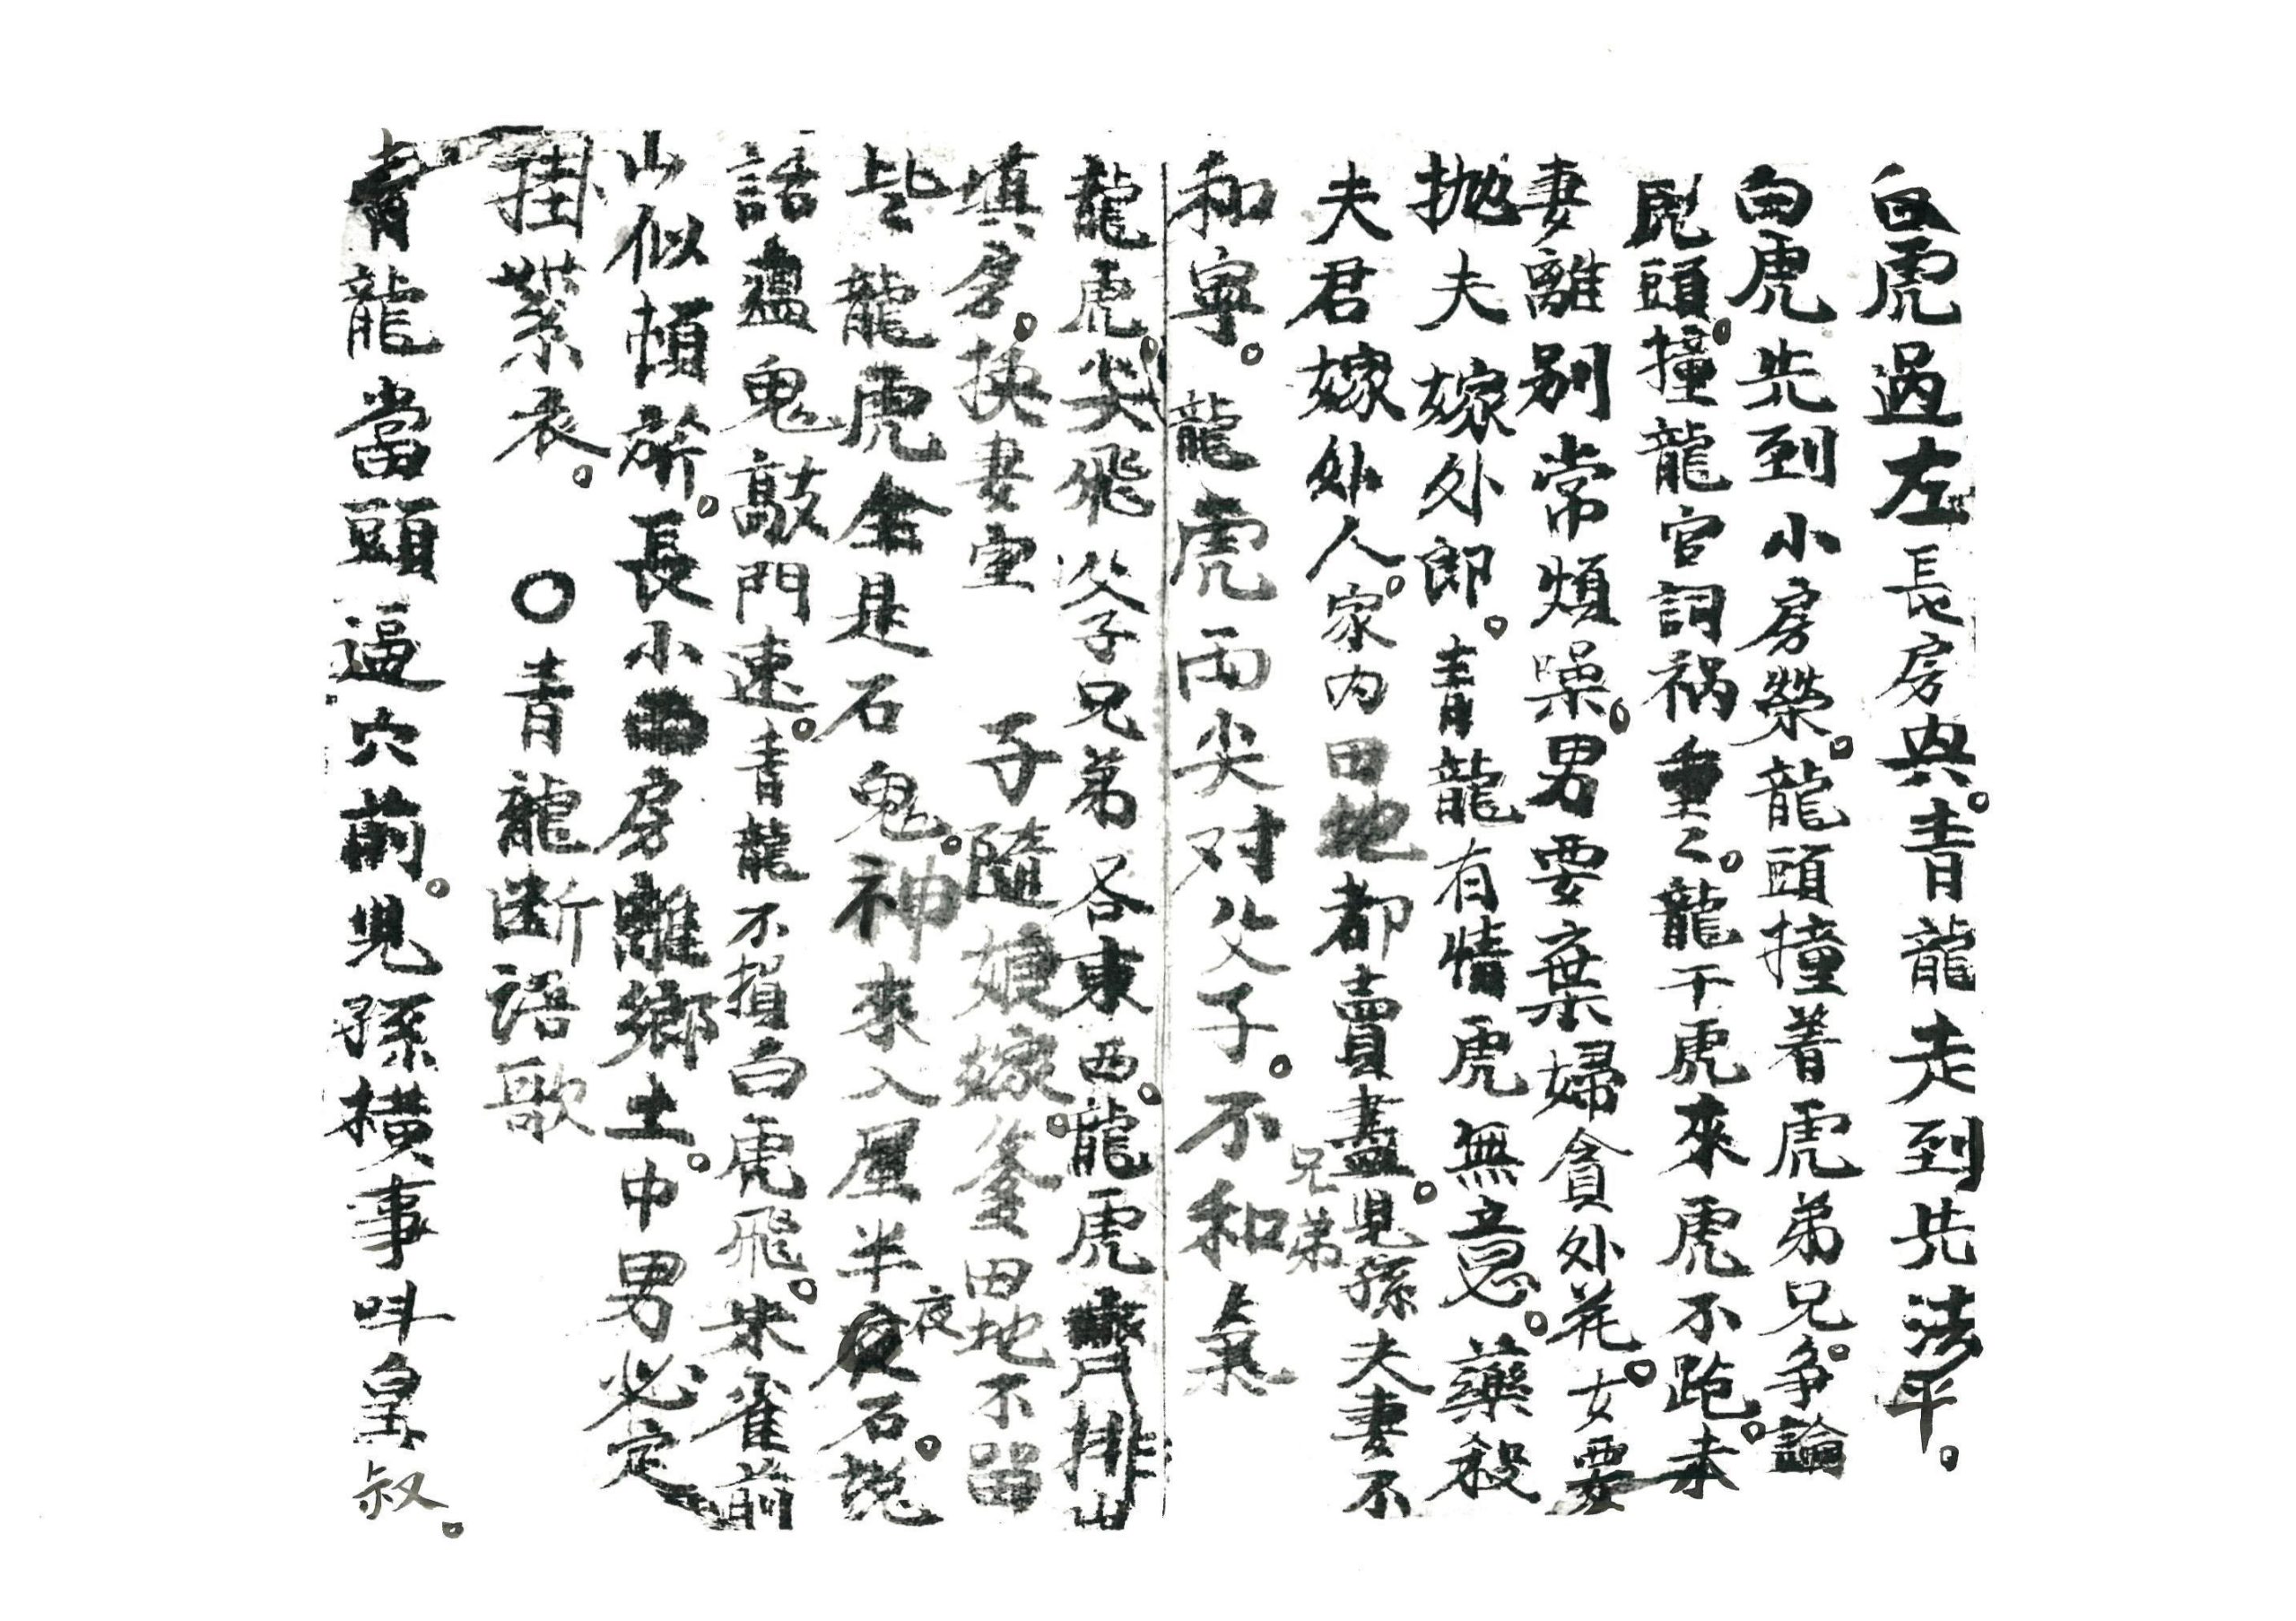 白虎過左長房典。青龍走到先法平。
白虎先到小房榮。龍頭撞着虎弟兄。争論
虎頭撞龍官詞祸重々。龍干虎來虎不跑。夫
妻離别常煩噪。男要棄婦貪外花。女要
抛夫嫁外郎。青龍有情虎無意。藥殺
夫君嫁外人。家内田地都賣盡。見孫夫妻不
和寧。龍虎両尖对父子。不和兄弟氣
龍虎尖飛父子兄弟各東西。龍虎齊排出
填房。换妻室 子隨娘嫁爹田地不留
些龍虎全是石鬼。神來入屋半夜石說
話盡鬼敲門速。青龍不損白虎飛。朱雀前
山似頓斜。長小両房離鄉土。中男必定
掛紫衣。 〇青龍断語歌
青龍當頭逼穴前。見孫横事呌皇叔。